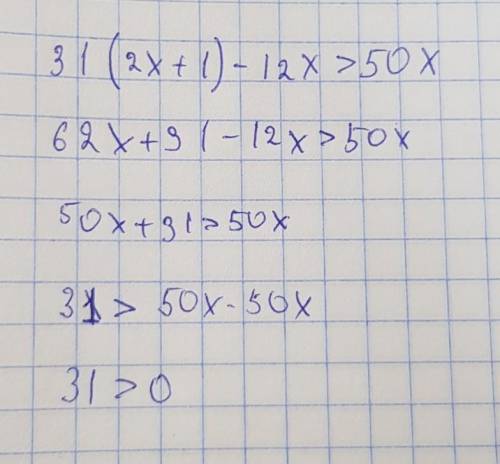 31(2x+1)-12x>50x
62x+31-12x>50x
50x+31>50x
31>50x-50x
31>0